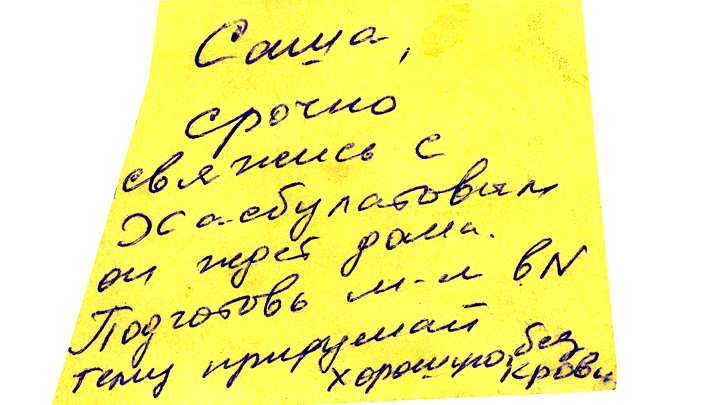 Саша,
срочно
свяжись с
Хасбулатовым
он ждёт дома.
Подготовь м-л в N
тему придумай
хорошую, без
крови